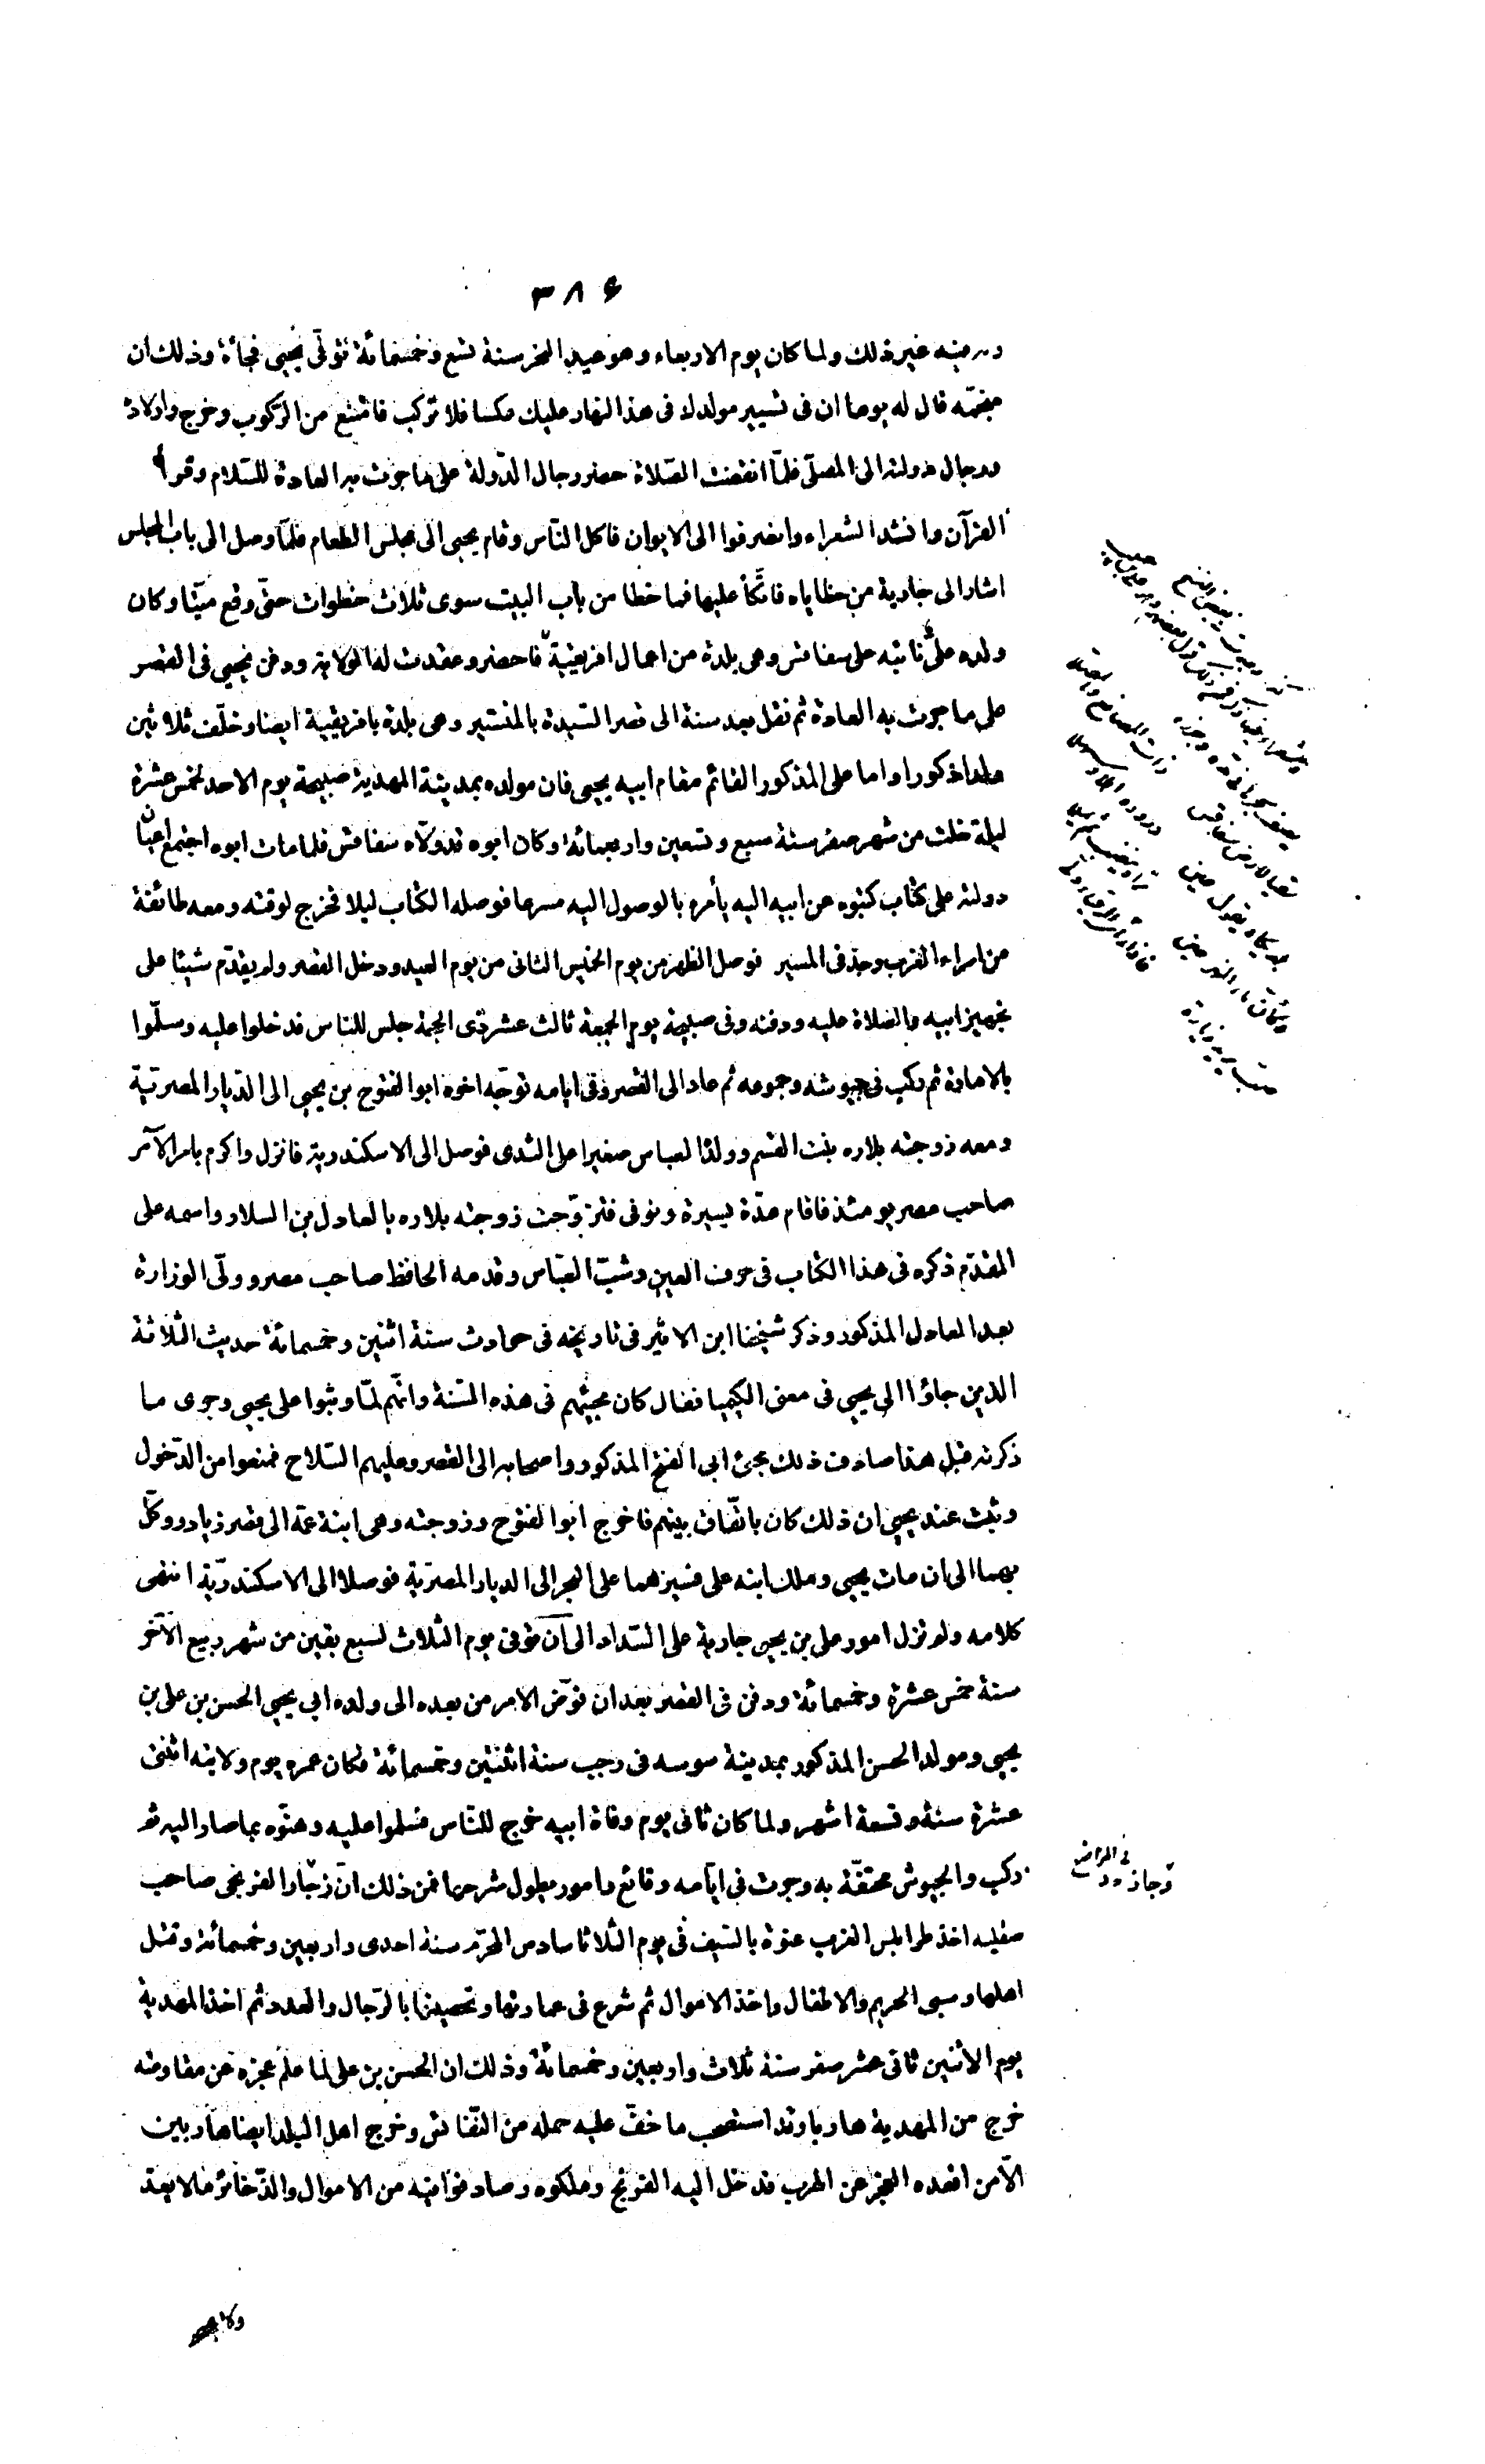 ٣٨٤
غير ذلك ولما كان يوم الاربعاء وهو عيد النحر سنة تسع وخمسمائة توفّى يحيى فجأة وذلك ان
منجّمه قال له يوما ان فى تسيير مولدك فى هذا النهار عليك عكسا فلا تركب فامتنع من الرّكوب وخرج واولاده
ورجال دولته الى المصلّى فلمّا انقضت الصّلاة حضر رجال الدّولة على ما جرت به العادة للسّلام وقرأ
القرآن وانشد الشعراء وانصرفوا الى الايوان فاكل النّاس وقام يحيى الى مجلس الطعام فلمّا وصل الى باب المجلس
اشار الى جارية من حظاياه فاتّكأ عليها فما خطا من باب البيت سوى ثلاث خطوات حتّى وقع ميّتا وكان
ولده علىّ نائبه على سفاقس وهى بلدة من اعمال افريقيّة فاحضر وعقدت له الولاية ودفن يحيى فى القصر
على ما جرت به العادة ثم نقل بعد سنة الى قصر السّيدة بالمنستير وهى بلدة بافريقيية ايضا وخلّف ثلاثين
ولدا ذكورا واما على المذكور القائم مقام ابيه يحيى فان مولده بمدينة المهدية صبيحة يوم الاحد لخمس عشرة
ليلة خلت من شهر صفر سنة سبع وتسعين واربعمائة وكان ابوه قد ولّاه سفاقس فلما مات ابوه اجتمع اعيان
دولته على كتاب كتبوه عن ابيه اليه يأمره بالوصول اليه مسرعا فوصله الكتاب ليلا فخرج لوقته ومعه طائفة
من امراء العرب وجدّ فى المسير فوصل الظهر من يوم الخميس الثانى من يوم العيد ودخل القصر ولم يقدّم شيئا على
تجهيز ابيه والصلاة عليه ودفنه وفى صبيحة يوم الجمعة ثالث عشر ذى الحجة جلس للناس فدخلوا عليه وسلّموا
بالامارة ثم ركب فى جيوشه وجموعه ثم عاد الى القصر وفى ايامه توجّه اخوه ابو الفتوح بن يحيى الى الدّيار المصريّة
ومعه زوجته بلاره بنت القسم وولدا لعباس صغيرا على الثدى فوصل الى الاسكندرية فانزل واكرم بامر الآمر
صاحب مصر يومئذ فاقام مدّة يسيرة وتوفى فتزوّجت زوجته بلاره بالعادل بن السلار واسمه على
المقدّم ذكره فى هذا الكتاب فى حرف العين وشبّ العبّاس وقدمه الحافظ صاحب مصر وولّى الوزارة
بعد العادل المذكور وذكر شيخنا ابن الاثير فى تاريخه فى حوادث سنة اثنين وخمسمائة حديث الثّلاثة
الذين جاؤا الى يحيى فى معنى الكيميا فقال كان مجيئهم فى هذه السّنة وانّهم لمّا وثبوا على يحيى وجرى ما
ذكرته قبل هذا صادف ذلك مجئ ابى الفتح المذكور واصحابه الى القصر وعليهم السّلاح فمنعوا من الدّخول
وثبت عند يحيى ان ذلك كان باتّفاق بينهم فاخرج ابو الفتوح وزوجته وهى ابنة عمّه الى قصر زياد ووكّل
بهما الى ان مات يحيى وملك ابنه على فسيّرهما على البحر الى الديار المصريّة فوصلا الى الاسكندريّة انتهى
كلامه ولم تزل امور على بن يحيى جارية على السّداد الى آن توفى يوم الثلاث لسبع بقين من شهر ربيع الآخر
سنة خمس عشرة وخمسمائة ودفن فى القصر بعد ان فوّض الامر من بعده الى ولده ابى يحيى الحسن بن على بن
يحيى ومولد الحسن المذكور بمدينة سوسه فى رجب سنة اثنتين وخمسمائة فكان عمره يوم ولايته اثنتى
عشرة سنة وتسعة اشهر ولما كان ثانى يوم وفاة ابيه خرج للنّاس فسلموا عليه وهنّوه بما صار اليه ثم
ركب والجيوش محتفّة به وجرت فى ايّامه وقائع وامور يطول شرحها فمن ذلك انّ زجّار الفرنجى صاحب
فى المراضع
صقليه اخذ طرابلس الغرب عنوة بالسّيف فى يوم الثّلاثا سادس المحرّم سنة احدى واربعين وخمسمائة وقتل
اهلها وسبى الحريم والاطفال واخذ الاموال ثم شرع فى عمارتها وتحصينها بالرّجال والعدد ثم اخذ المهدية
يوم الاثنين ثانى عشر صفر سنة ثلاث واربعين وخمسمائة وذلك ان الحسن بن على لما علم عجزه عن مقاومته
خرج من المهدية هاربا وقد استصحب ما خفّ عليه حمله من النّفائس وخرج اهل البلد ايضا هاربين
الّا من اقعده العجز عن الهرب فدخل اليه الفرنج وملكوه وصادفوا فيه من الاموال والذّخائر مالا يعدّ